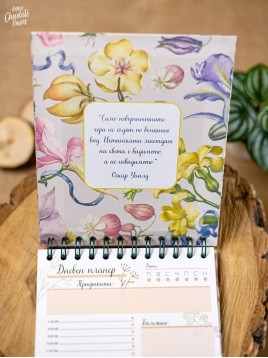 Chocolate
"Само повърхностните
хора не съдят по външния
вид. Истинската мистерия
на света е видимото,
а не невидимото."
Оскар Уайлд
Дневен планер
Дата:
П В С Ч П С Н
Приоритети:
7:00
Бележки: